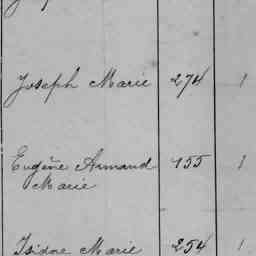 Joseph Marie 274 1
Eugène Armand 155 1
Marie
Isidore Marie 254 1